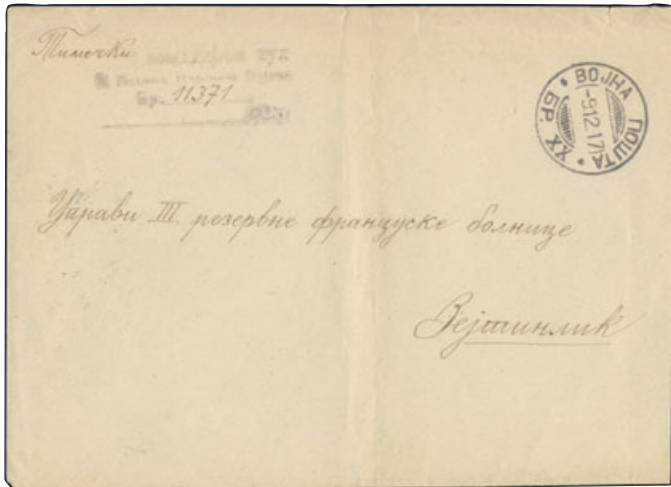 Тимочки
Бр. 11371
ВОЈНА ПОШТА
-9.12.17
БР. XX
Управи III. резервне француске болнице
Зејтинлик